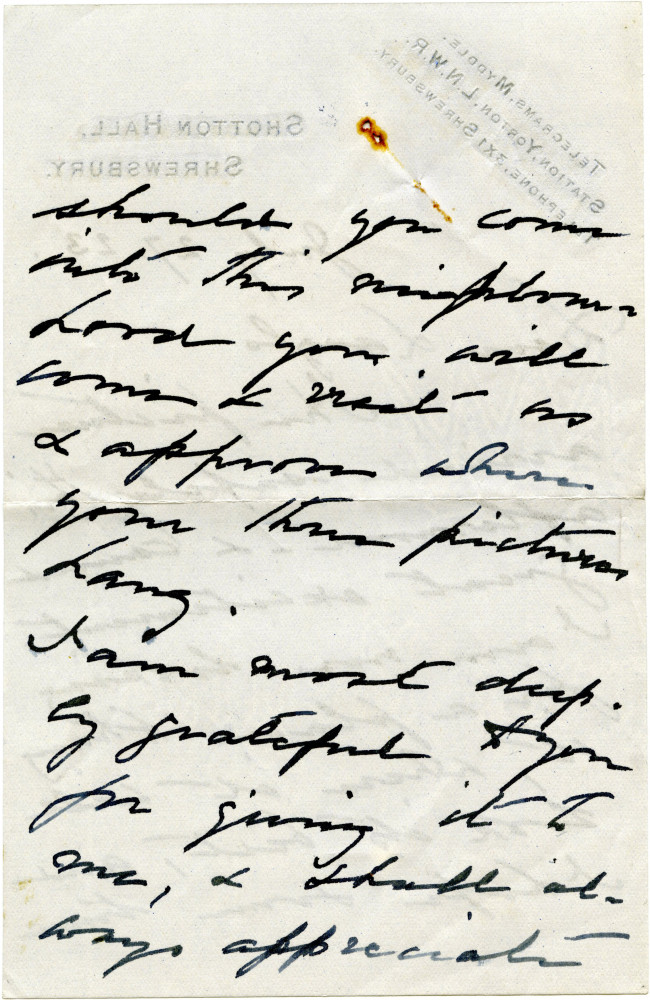 TELEGRAMS, MYDDLE.
STATION, YORTON, L.N.W.R.
TELEPHONE, 3X1 SHREWSBURY.
SHOTTON HALL,
SHREWSBURY.
should you come
into this neighbour-
hood you will
come & visit us
& approve where
your three pictures
hang.
I am most deep-
ly grateful to you
for giving it to
me, & shall al-
ways appreciate